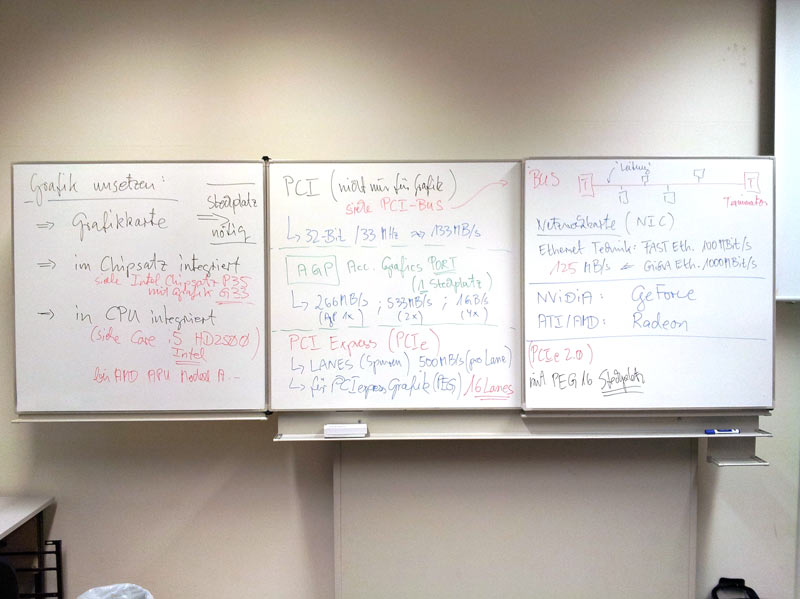 Grafik umsetzen:
⇒ Grafikkarte ⇒ Steckplatz nötig
⇒ im Chipsatz integriert
siehe Intel Chipsatz P35
mit Grafik G33
→ in CPU integriert
(siehe Core i5 HD2500)
Intel
bei AMD APU A...
PCI (nicht nur für Grafik)
siehe PCI-BUS
↳ 32-Bit / 33 MHz ⇒ 133MB/s
AGP Acc. Grafics PORT
(1 Steckplatz)
↳ 266MB/s ; 533MB/s ; 1GB/s
(AGP 1x) (2x) (4x)
PCI Express (PCIe)
↳ LANES (Spuren) 500MB/s (pro Lane)
↳ für PCIexpress Grafik (PEG) 16 Lanes
BUS T Leitung T
Terminator
Netzwerkkarte (NIC)
Ethernet Technik: FAST Eth. 100MBit/s
125 MB/s ⇐ GIGA Eth. 1000MBit/s
NVIDIA: GeForce
ATI/AMD: Radeon
(PCIe 2.0)
mit PEG 16 Steckplatz